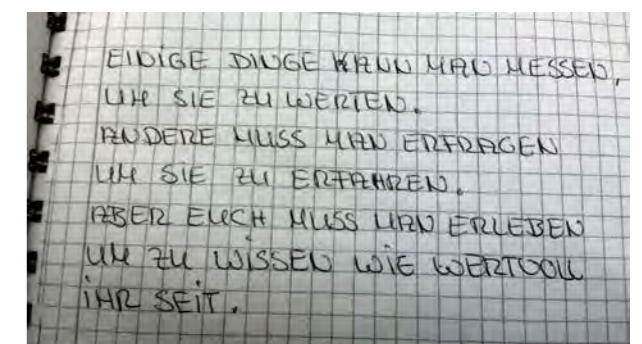 EINIGE DINGE KANN MAN MESSEN,
UM SIE ZU WERTEN.
ANDERE MUSS MAN ERFRAGEN
UM SIE ZU ERFAHREN.
ABER EUCH MUSS MAN ERLEBEN
UM ZU WISSEN WIE WERTVOLL
IHR SEIT.